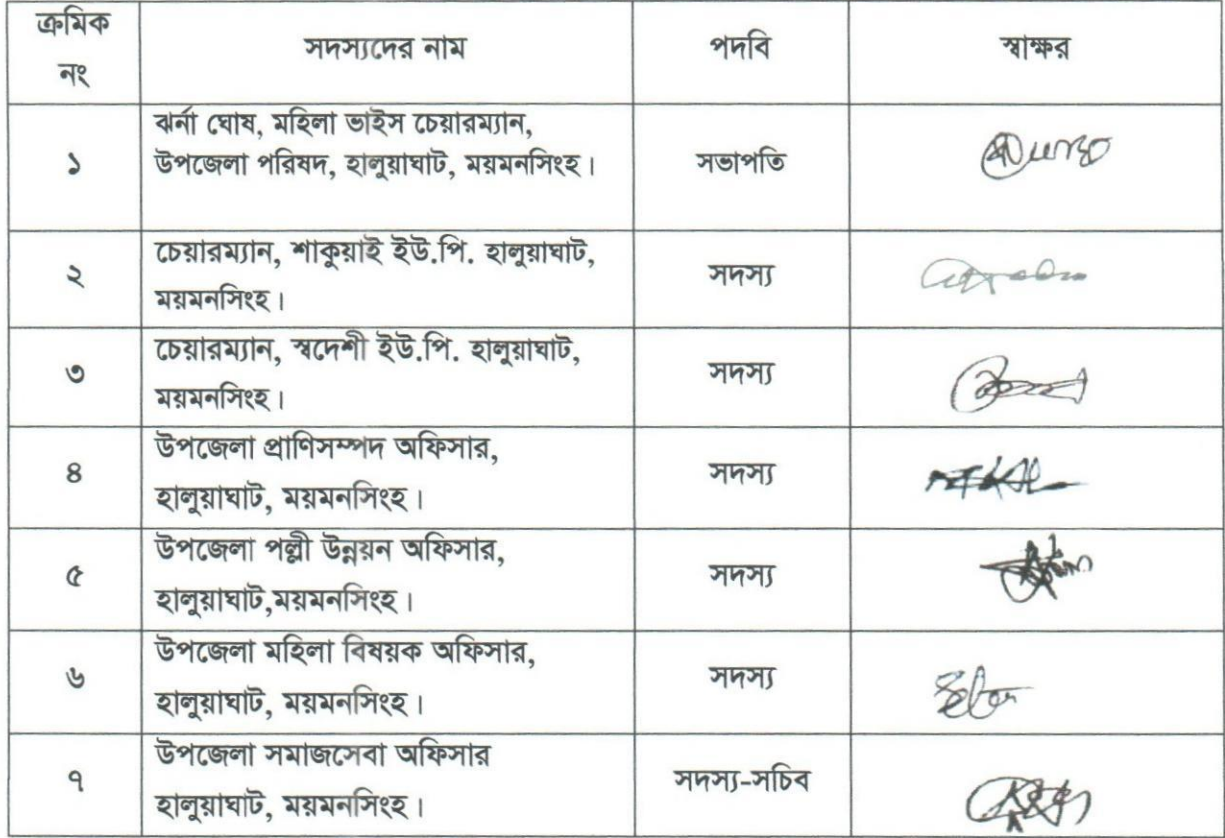 ক্রমিক
নং
সদস্যদের নাম
পদবি
স্বাক্ষর
১
ঝর্না ঘোষ, মহিলা ভাইস চেয়ারম্যান,
উপজেলা পরিষদ, হালুয়াঘাট, ময়মনসিংহ।
সভাপতি
২
চেয়ারম্যান, শাকুয়াই ইউ.পি. হালুয়াঘাট,
ময়মনসিংহ।
সদস্য
৩
চেয়ারম্যান, স্বদেশী ইউ.পি. হালুয়াঘাট,
ময়মনসিংহ।
সদস্য
৪
উপজেলা প্রাণিসম্পদ অফিসার,
হালুয়াঘাট, ময়মনসিংহ।
সদস্য
৫
উপজেলা পল্লী উন্নয়ন অফিসার,
হালুয়াঘাট,ময়মনসিংহ।
সদস্য
৬
উপজেলা মহিলা বিষয়ক অফিসার,
হালুয়াঘাট, ময়মনসিংহ।
সদস্য
৭
উপজেলা সমাজসেবা অফিসার
হালুয়াঘাট, ময়মনসিংহ।
সদস্য-সচিব